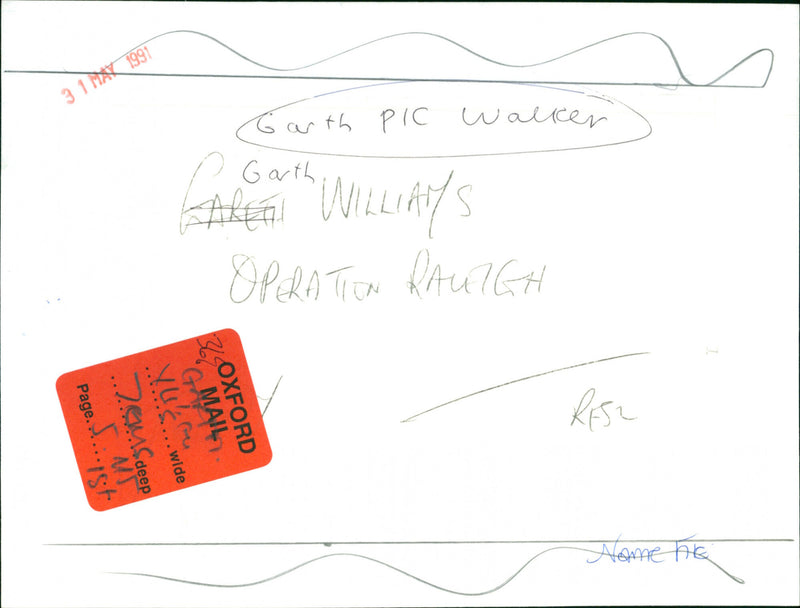 31 MAY 1991
Garth PIC Walker
Garth
GARETH WILLIAMS
OPERATION RALEIGH
OXFORD
MAIL
wide
7cms deep
Page 5
1st
Name File